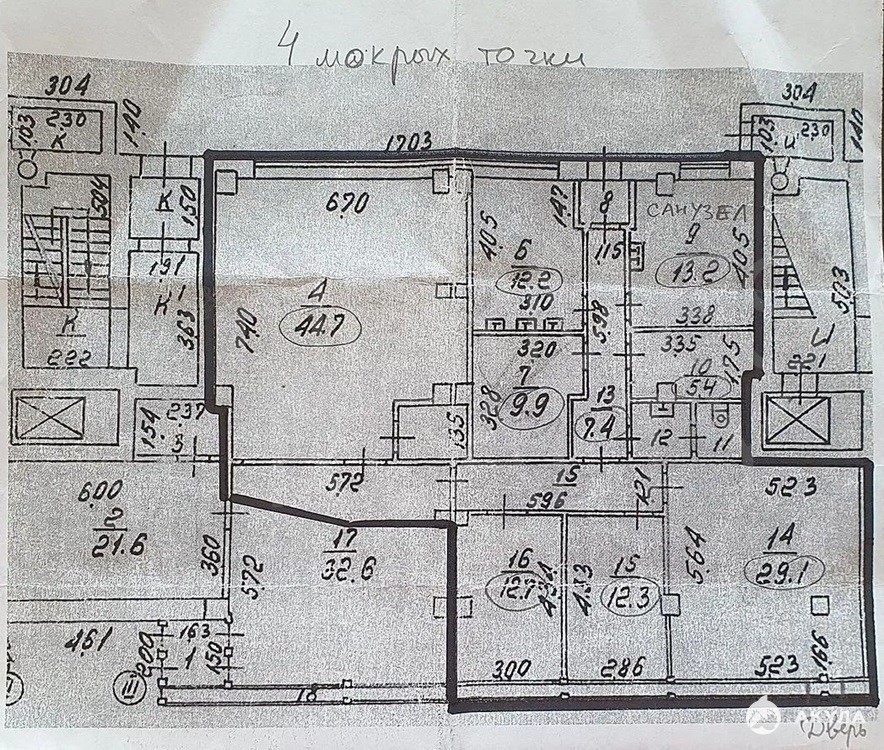 4 мокрых точки
304
304
103
230
К
140
1703
103
230
и
140
504
К
150
670
405
147
8
САНУЗЕЛ
9
13.2
405
191
К
1
363
4
44.7
740
6
12.2
310
115
598
338
503
К
222
320
7
9.9
328
335
10
5.4
175
221
154
237
3
135
13
7.4
12
11
600
2
21.6
572
15
596
121
523
360
572
17
32.6
16
12.7
434
433
15
12.3
564
14
29.1
461
200
163
1
150
III
18
300
286
523
166
АКУЛА
Дверь